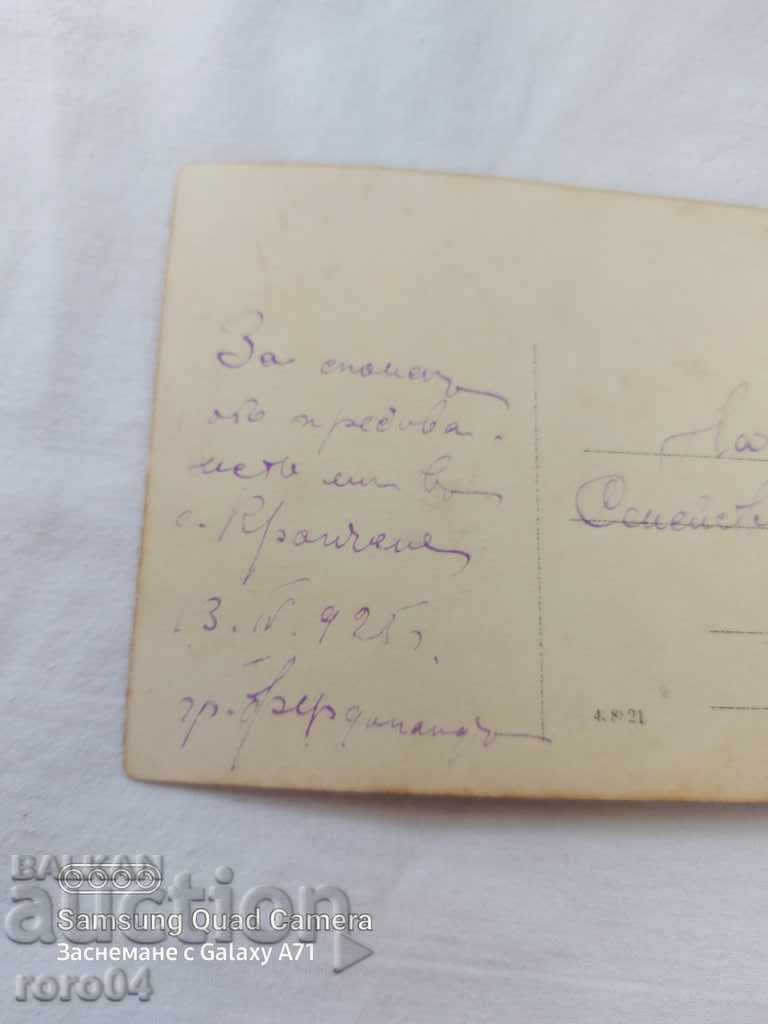 За споменъ
отъ пребова-
ието ми въ
с. Крапчане
13. IV. 925 г.
гр. Фердинандъ
На
Семейств
4. 8. 21
BALKAN
auction
Samsung Quad Camera
Заснемане с Galaxy A71
roro04